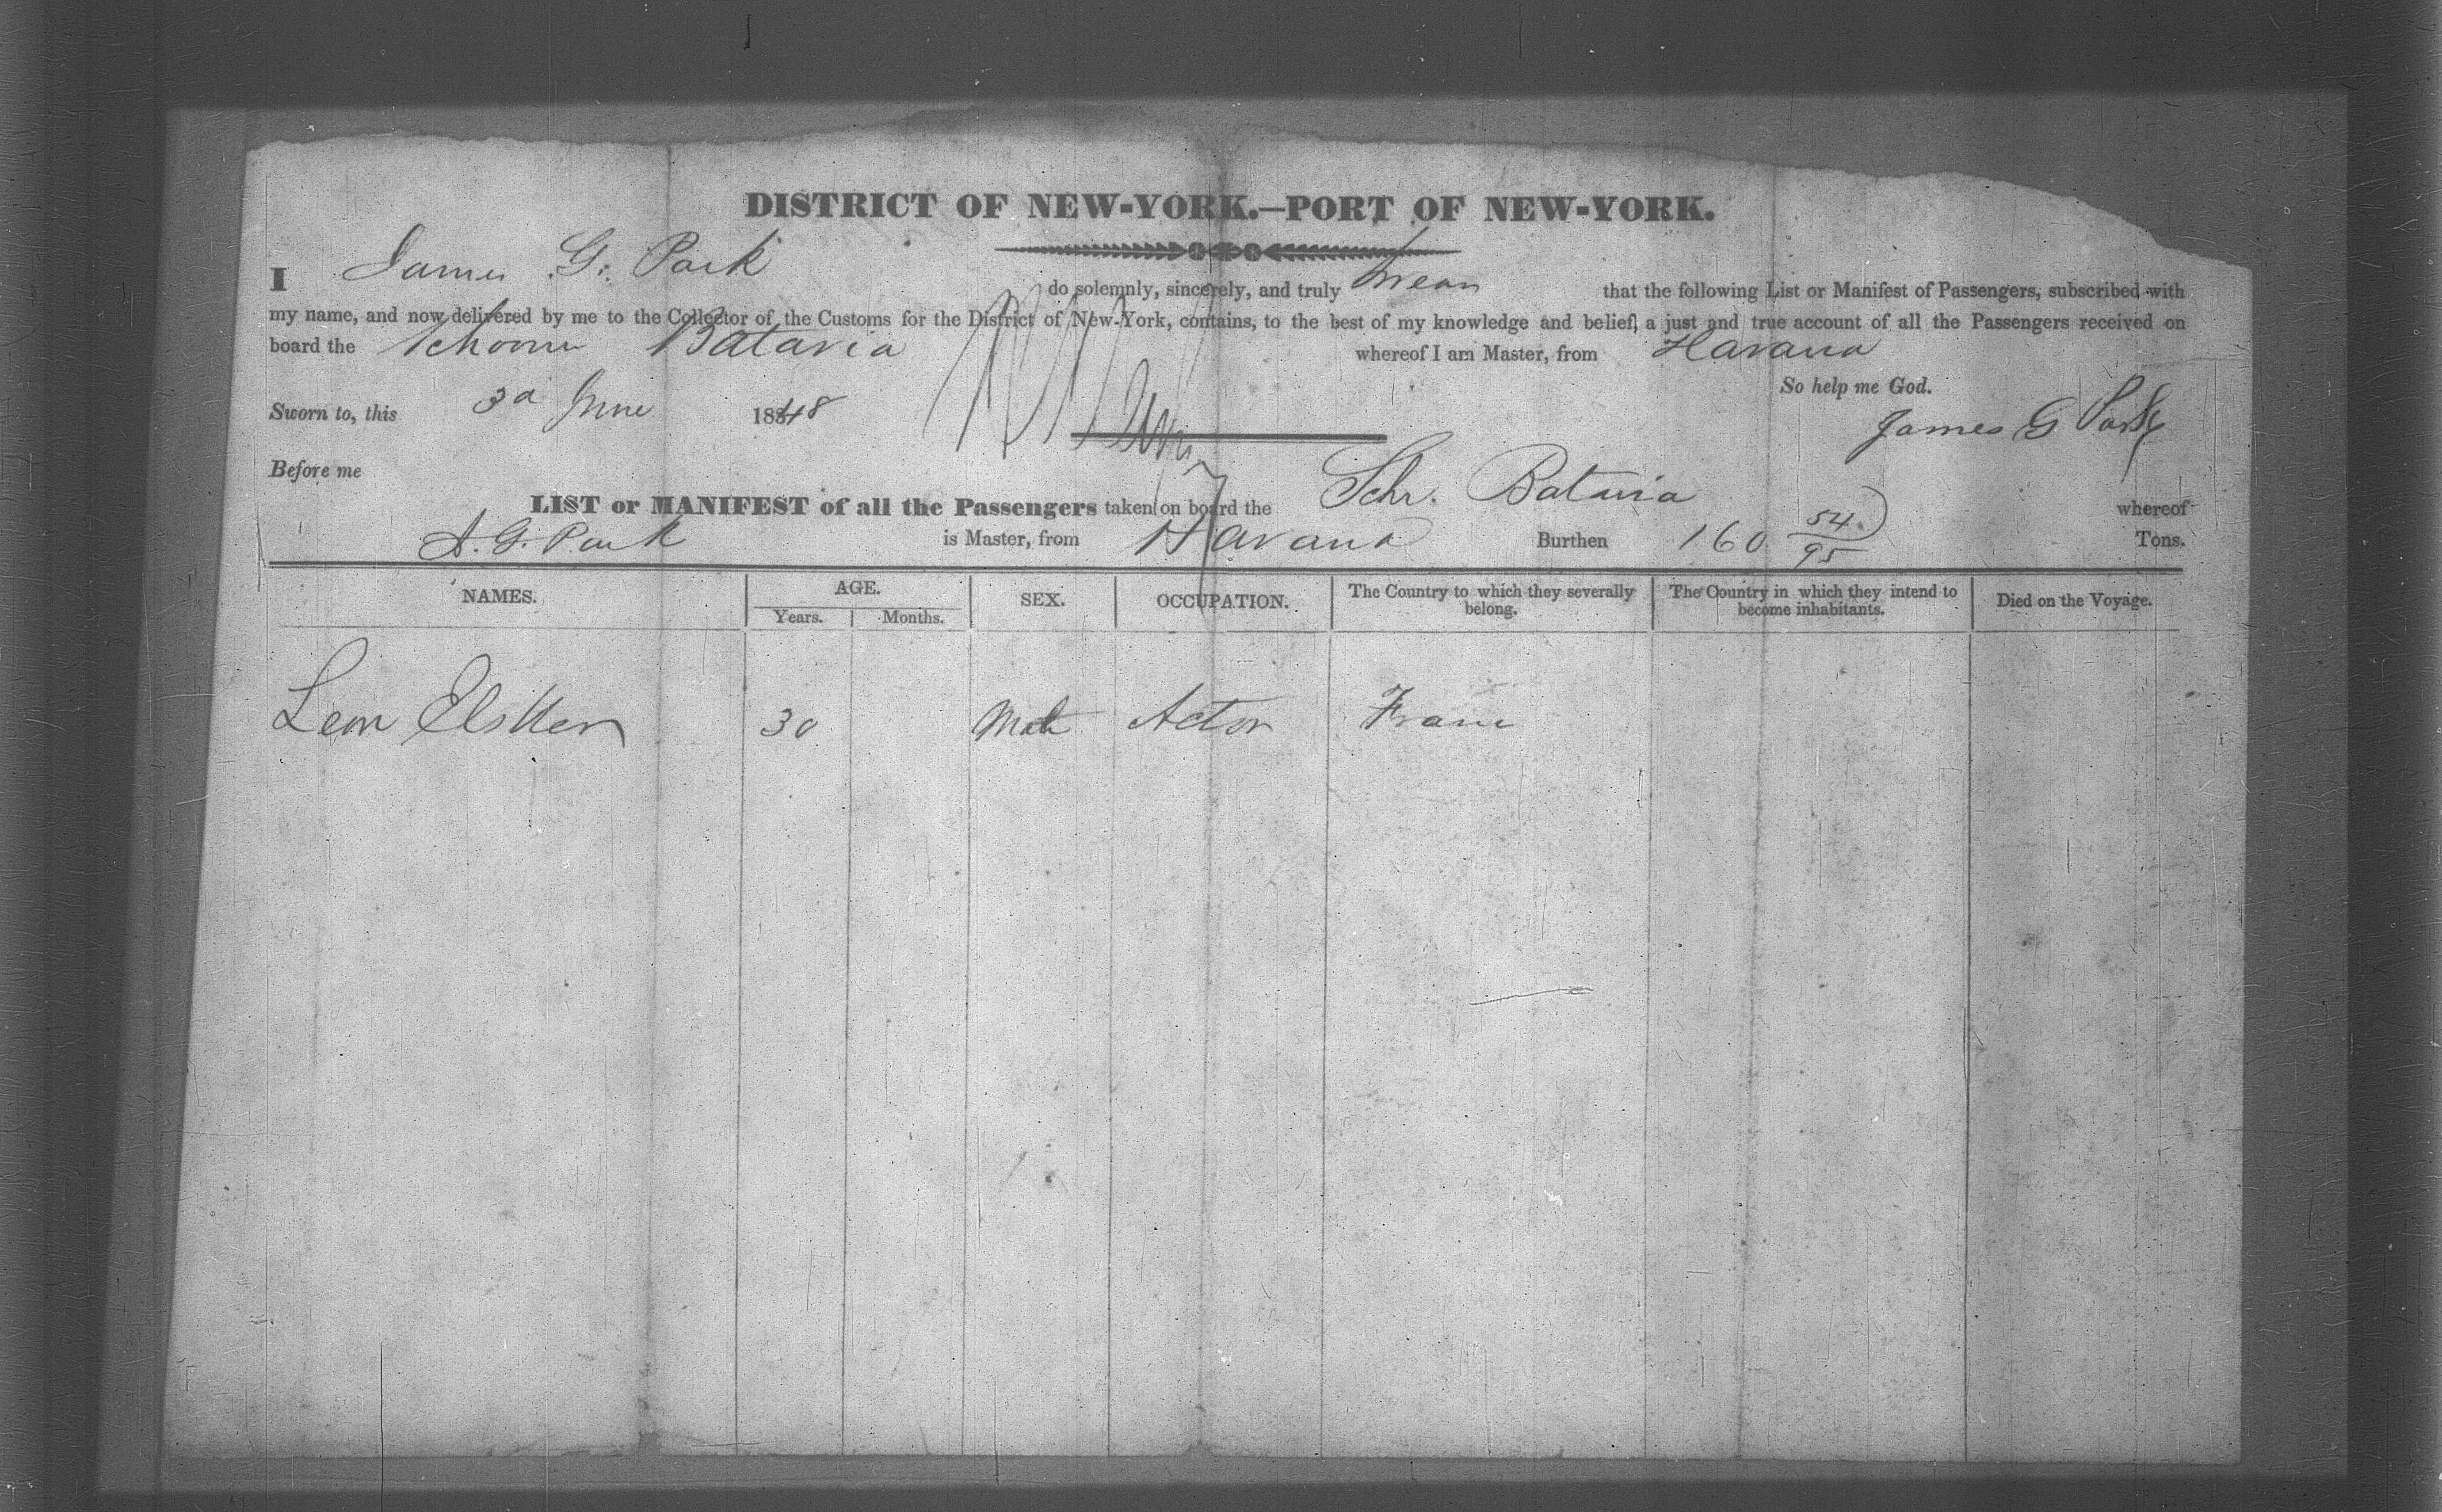 DISTRICT OF NEW-YORK.—PORT OF NEW-YORK.
I James G. Park do solemnly, sincerely, and truly swear that the following List or Manifest of Passengers, subscribed with
my name, and now delivered by me to the Collector of the Customs for the District of New-York, contains, to the best of my knowledge and belief, a just and true account of all the Passengers received on
board the Schooner Batavia whereof I am Master, from Havana
So help me God.
Sworn to, this 3d June 1848 James G Park
Before me
LIST or MANIFEST of all the Passengers taken on board the Schr. Batavia whereof
J. G. Park is Master, from Havana Burthen 160 54/95 Tons.
NAMES. AGE. SEX. OCCUPATION. The Country to which they severally belong. The Country in which they intend to become inhabitants. Died on the Voyage.
Years. Months.
Leon 30 Male Actor France